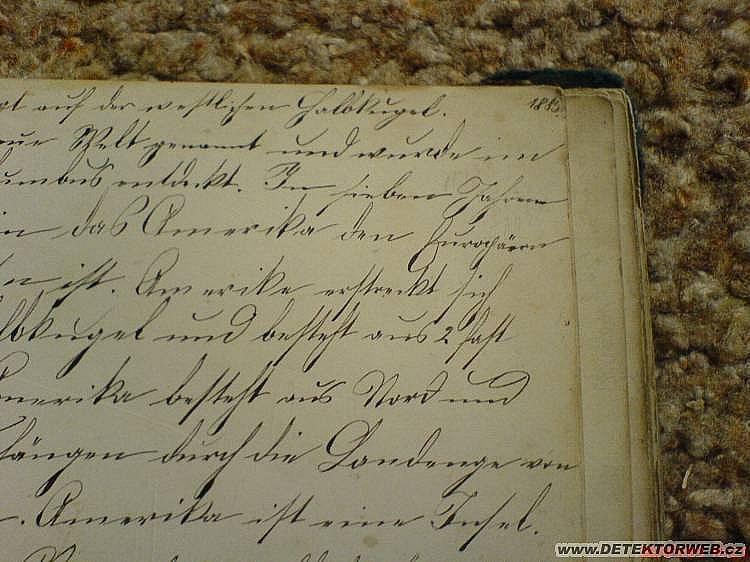 auf der westlichen Halbkugel. 188
Welt genannt und wurde im
umbus entdekt. In sieben Jahren
in das Amerika den Europäern
n ist. Amerika erstreckt sich
lbkugel und besteht aus 2 fast
Amerika besteht aus Nord und
hängen durch die Landenge von
Amerika ist eine Insel.
www.DETEKTORWEB.cz